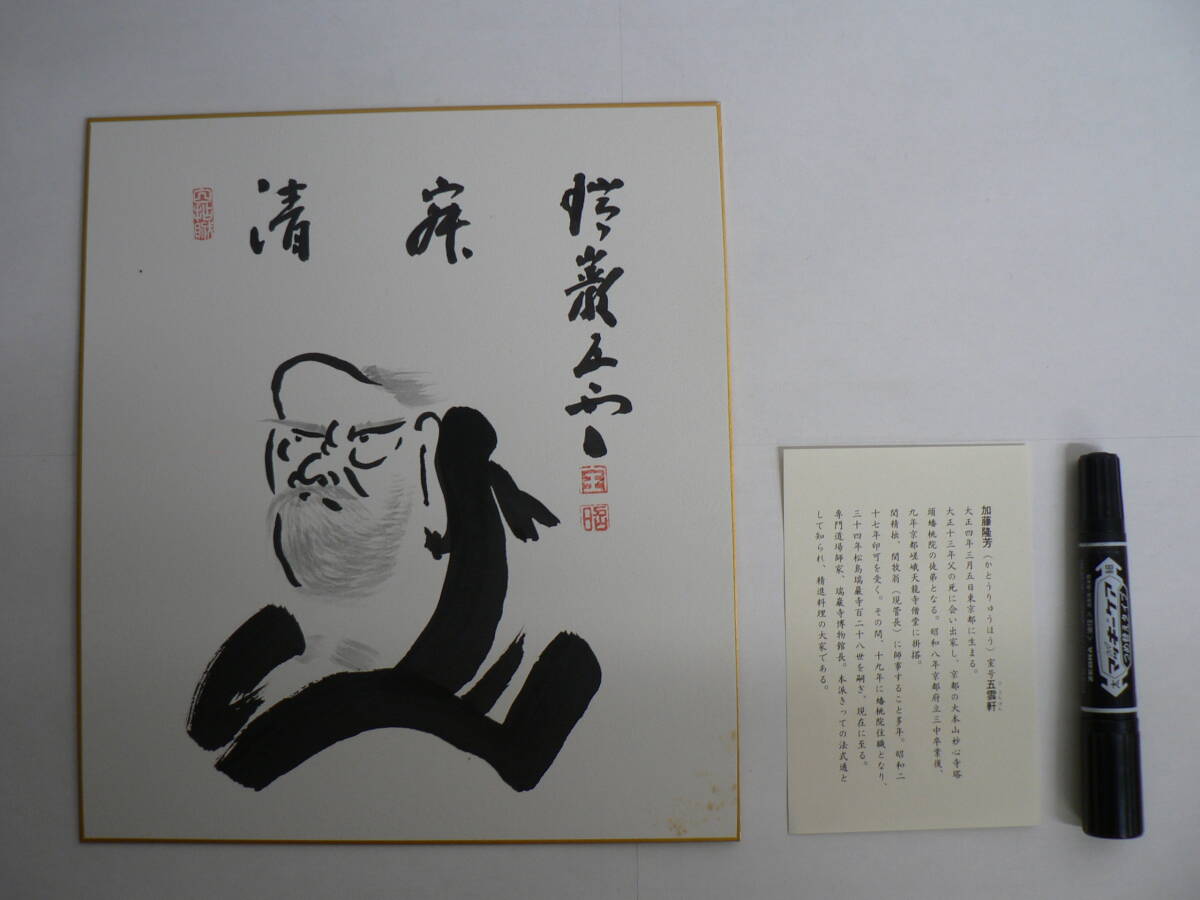 清寂
瑞巌五雲
加藤隆芳(かとうりゅうほう)室号五雲軒
大正四年三月五日東京都に生まる。
大正十三年父の死に会い出家し、京都の大本山妙心寺塔
頭蟠桃院の徒弟となる。昭和八年京都府立三中卒業後、
九年京都嵯峨天龍寺僧堂に掛搭。
関精拙、関牧翁(現管長)に師事すること多年。昭和二
十七年印可を受く。その間、十九年に蟠桃院住職となり、
三十四年松島瑞巌寺百二十八世を嗣ぎ、現在に至る。
専門道場師家、瑞巌寺博物館長。本派きっての法式通と
して知られ、精進料理の大家である。
マッキーケア